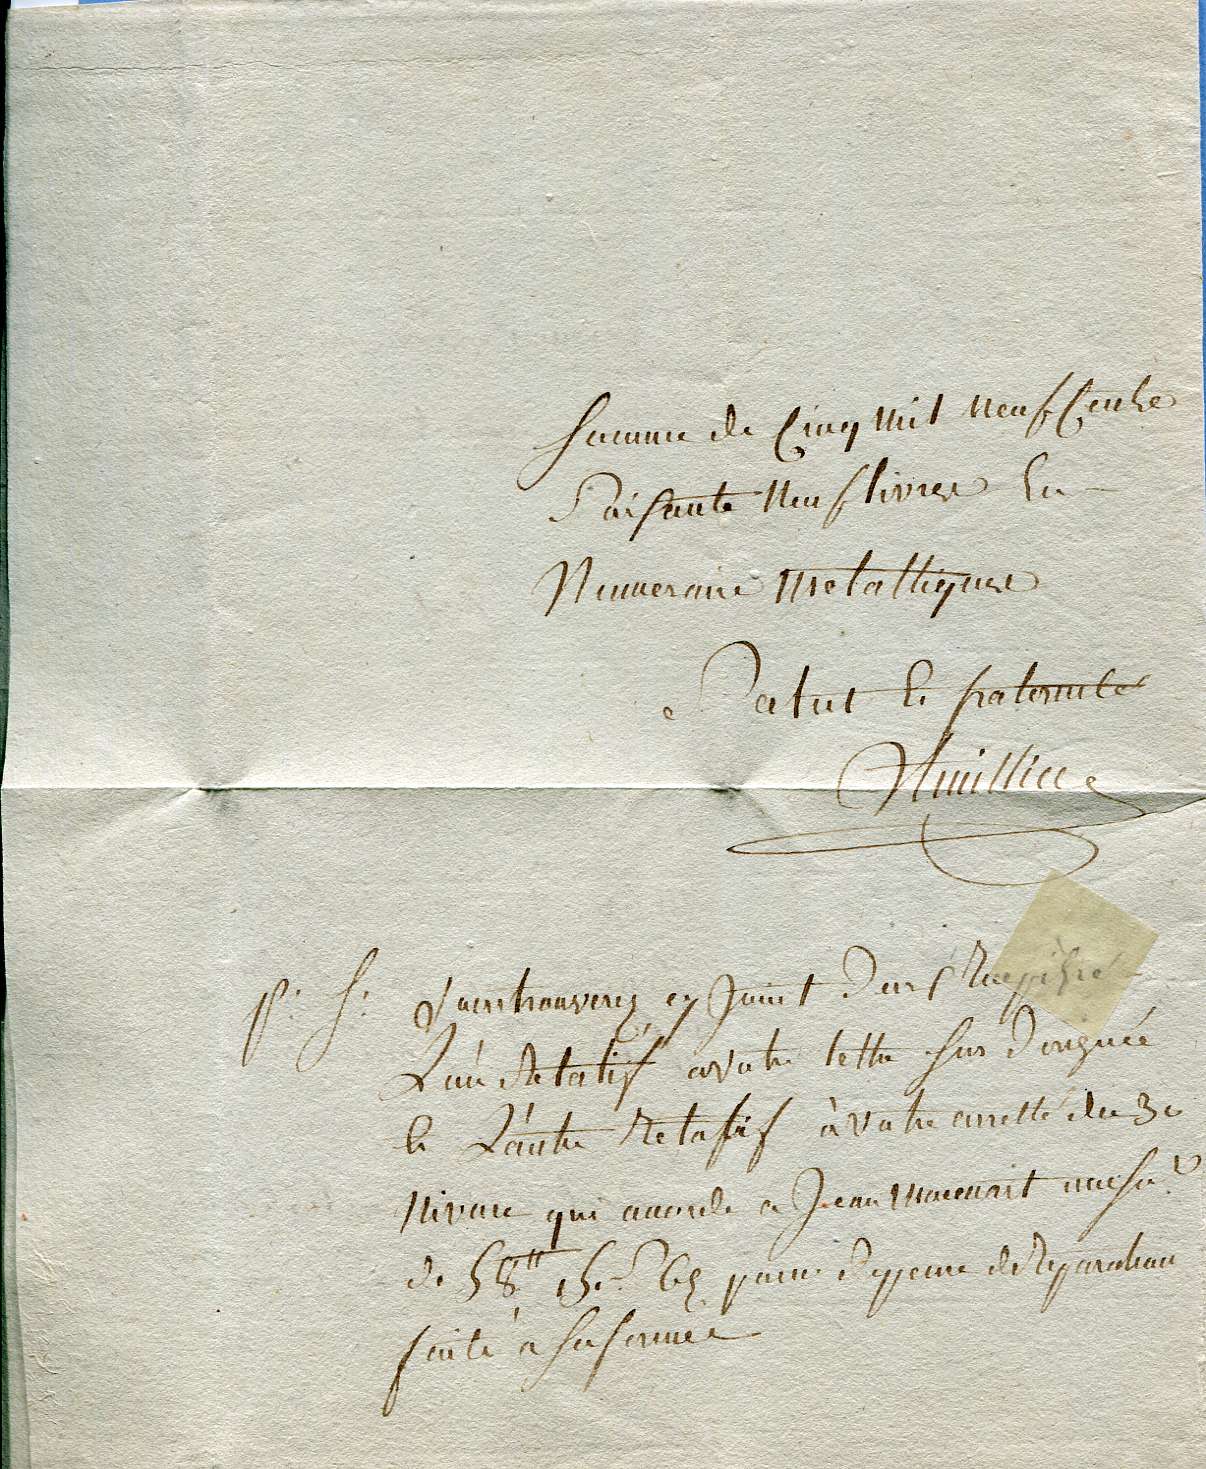 Somme de Cinq Mil Neuf Cents
Soisante Neuf livres En
Numeraire Metallique
Salut Et fraternité
P. S. Vous trouverez cy Joint Deux
L'un Relatif a votre lettre Sus Designée
Et L'autre Relatif à votre arretté du 3e
Nivose qui accorde a Jean
de 58tt 15s pour Depense de Reparation
faite a Sa ferme